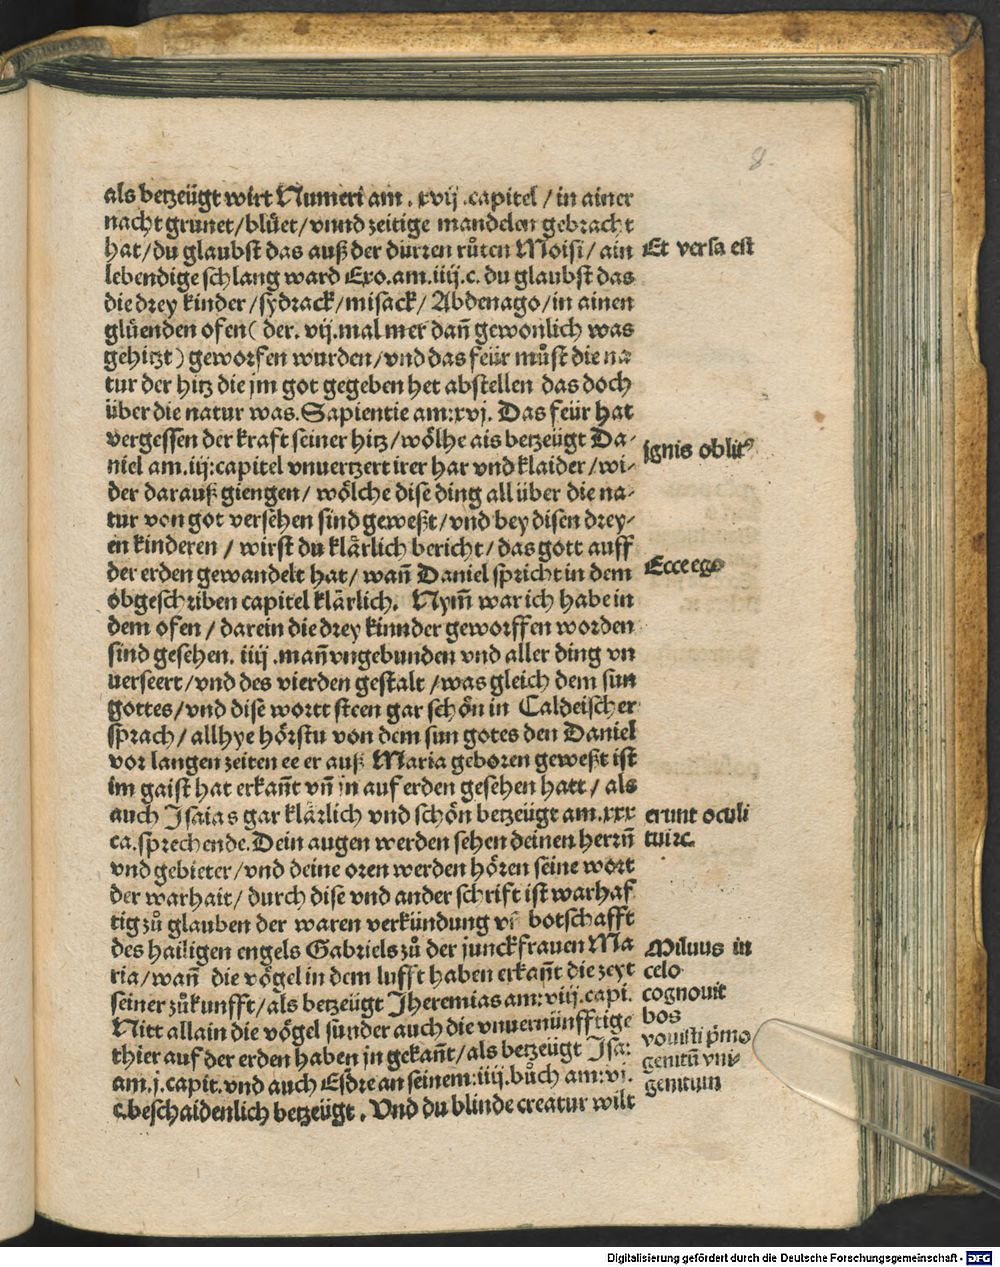 8.
als betzeügt wirt Numeri am . xvij .capitel / in ainer
nacht grunet/blüet/vnnd zeitige manddlen gebracht
hat/du glaubst das auß der dürren růten Moisi/ ain
Et versa est
lebendige schlang ward Exo.am.iiij.c. du glaubst das
die drey kinder/sydrack/misack/Abdenago/in ainen
glüenden ofen( der. vij.mal mer dañ gewonlich was
gehitzt) geworfen wurden/vnd das feür můst die na
tur der hitz die jm got gegeben het abstellen das doch
über die natur was.Sapientie am:xvj. Das feür hat
vergessen der kraft seiner hitz/wölhe als betzeügt Da-
ignis oblitꝰ
niel am.iij:capitel vnuertzert irer har vnd klaider/wi-
der darauß giengen/ wölche dise ding all über die na-
tur von got versehen sind geweßt/vnd bey disen drey-
en kinderen / wirst du klärlich bericht/das gott auff
der erden gewandelt hat/ wañ Daniel spricht in dem
Ecce ego
obgeschriben capitel klärlich. Nym̄ war ich habe in
dem ofen / darein die drey kinnder geworffen worden
sind gesehen. iiij .mañ vngebunden vnd aller ding vn
uerseert/vnd des vierden gestalt /was gleich dem sun
gottes/vnd dise wortt steen gar schön in Caldeischer
sprach/allhye hörstu von dem sun gotes den Daniel
vor langen zeiten ee er auß Maria geboren geweßt ist
im gaist hat erkañt vñ jn auf erden gesehen hatt / als
auch Isaias gar klärlich vnd schön betzeügt am.xxx
erunt oculi
ca.sprechende.Dein augen werden sehen deinen herrñ
tui ꝛc.
vnd gebieter/vnd deine oren werden hören seine wort
der warhait/durch dise vnd ander schrift ist warhaf
tig zů glauben der waren verkündung vñ botschafft
des hailigen engels Gabriels zů der junckfrauen Ma
Miluus in
ria/wañ die vögel in dem lufft haben erkañt die zeyt
celo
seiner zůkunfft/als betzeügt Jheremias am:viij.capi.
cognouit
Nitt allain die vögel sunder auch die vnuernünfftige
bos
thier auf der erden haben jn gekañt/als betzeügt Isa:
am.j.capit.vnd auch Esdre an seinem:iiij.bůch am:vj.
genitũ vni-
c.beschaidenlich betzeügt . Vnd du blinde creatur wilt
genitum
Digitalisierung gefördert durch die Deutsche Forschungsgemeinschaft - DFG